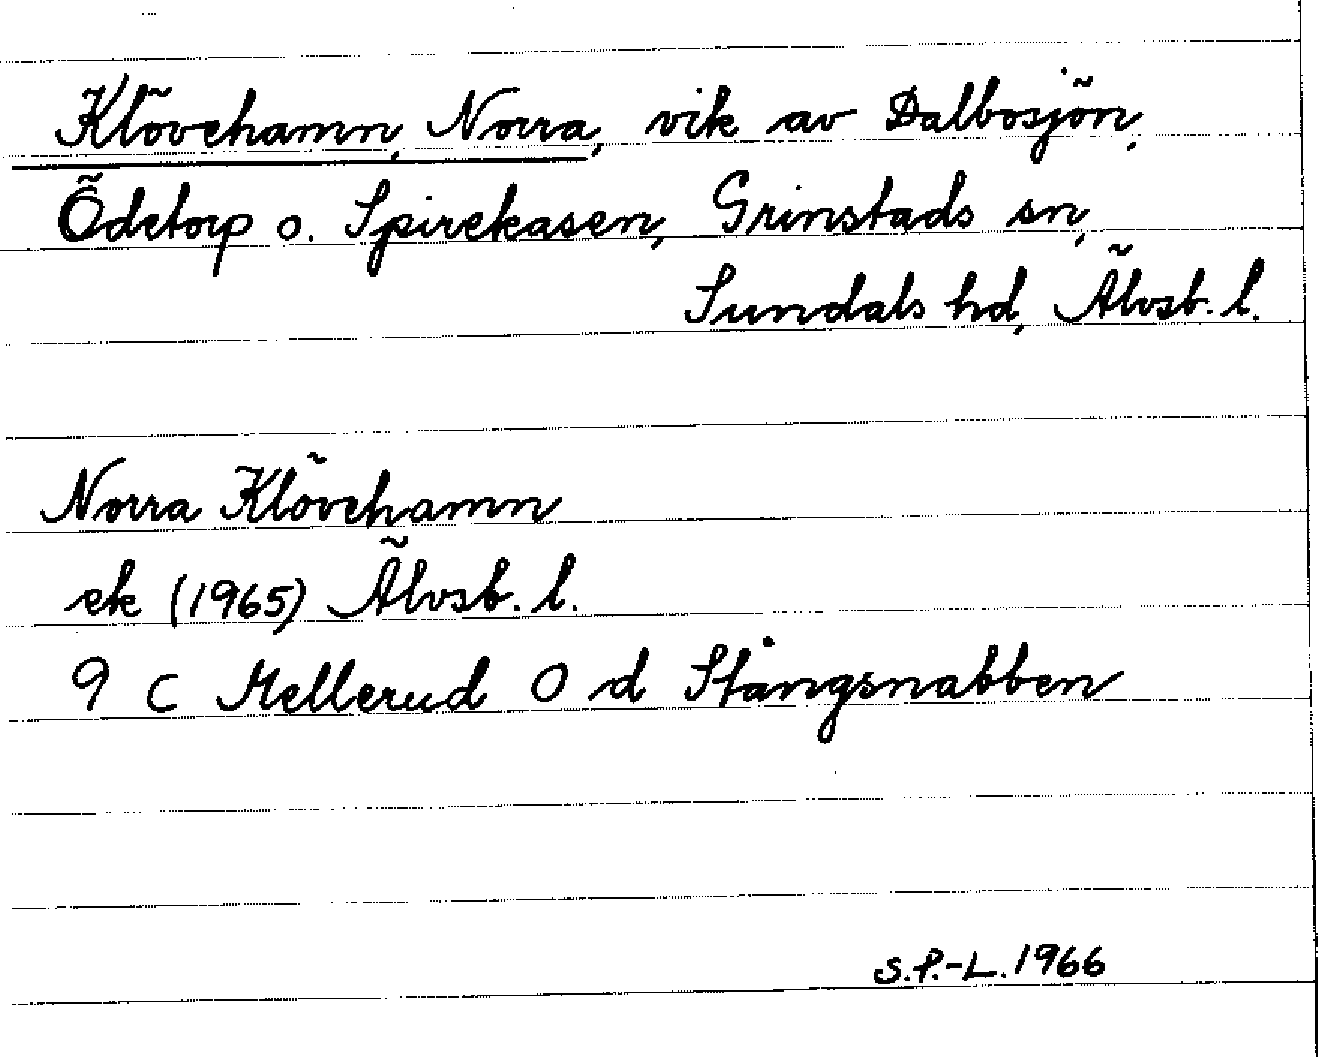 Klövehamn, Norra, vik av Dalbosjön,
Ödetorp o. Spirekasen, Grinstads sn,
Sundals hd, Älvsb. l.
Norra Klövehamn
ek (1965) Älvsb. l.
9 C Mellerud O d Stångsnabben
S.P.-L. 1966